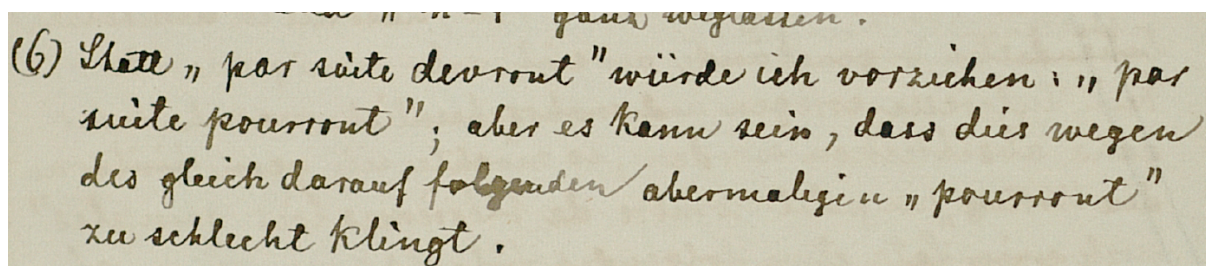 ganz weglassen.
(6) Statt „ par suite devront " würde ich vorziehen: „ par
suite pourront "; aber es kann sein, dass dies wegen
des gleich darauf folgenden abermaligen „ pourront "
zu schlecht klingt.